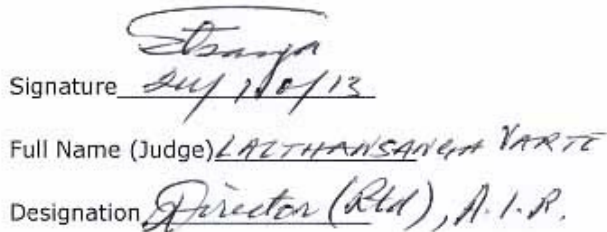 Signature 24/10/13
Full Name (Judge) LALTHANSANGA VARTE
Designation Director (Rtd), A.I.R.